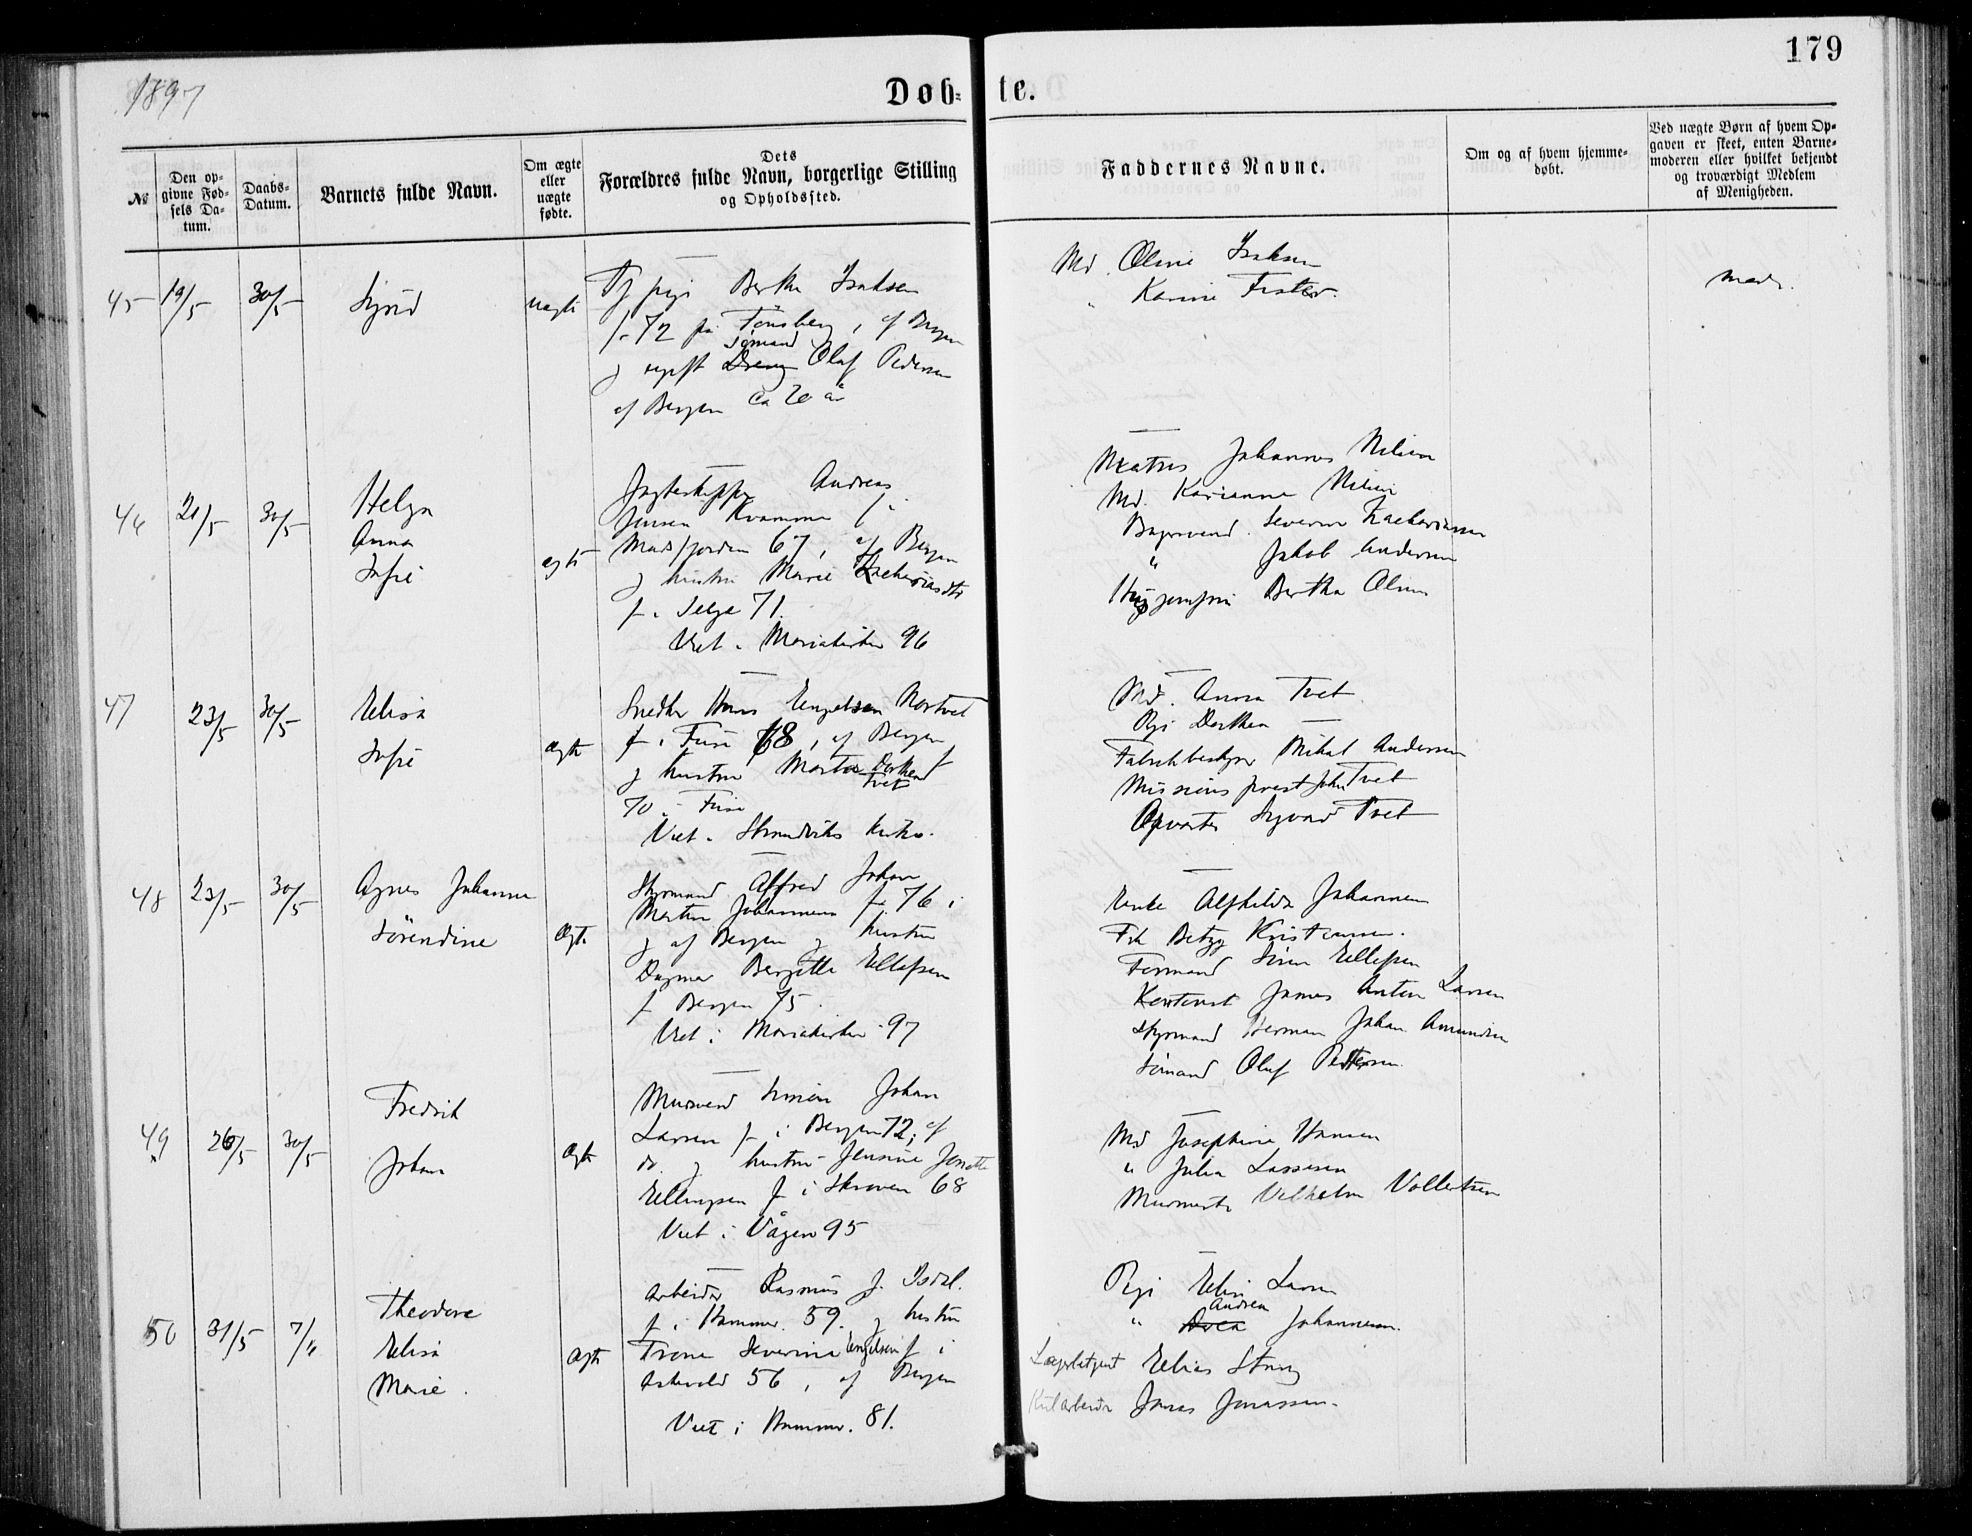 179
1897
Døb-
te.
№
Den op-
givne Fød-
sels Da-
tum.
Daabs-
Datum.
Barnets fulde Navn.
Om ægte
eller
uægte
fødte.
Dets
Forældres fulde Navn, borgerlige Stilling
og Opholdssted.
Faddernes Navne.
Om og af hvem hjemme-
døbt.
Ved uægte Børn af hvem Op-
gaven er skeet, enten Barne-
moderen eller hvilket bekjendt
og troværdigt Medlem
af Menigheden.
45 19/5 30/5
Sigrid
uægte
Berthe Isaksen
f. 72 på Tønsberg, af Bergen
Sømand
og Dreng Olaf Pedersen
af Bergen ca 20 år
Md. Oline Isaksen
" Karine
46 21/5 30/5
Helga
Anna
Sofie
ægte
Jagteskipper Andreas
Jensen Kvamme f. i
67, af Bergen
og hustru Marie Zachariasdtr
f. i Selje 71.
Viet i Mariakirken 96
Matros Johannes Nilsen
Md. Karianne Nilsen
Severin Zachariasen
" Jakob Andersen
Bertha Olsen
47 23/5 30/5
Elisa
Sofie
ægte
Snedker Hans Engelsen
f. i Fuse 68, af Bergen
og hustru Marta Dorthea
Tvet f
70 i Fuse
Viet i Strandviks kirke.
Md. Anna Tvet
Pgi Dorthea —
Fabrikbestyrer Mikal Andersen
Missions prest John Tvet
Opvarter Sigvard Tvet
48 23/5 30/5
Agnes Johanne
Sørendine
ægte
Styrmand Alfred Johan
Martin Johannesen f. 76 i
og af Bergen og hustru
Dagmar Bergitte Ellefsen
f Bergen 75.
Viet i Mariakirken 97
Enke Alfhilda Johannesen
Frk Betzy Kristensen.
Formand Søren Ellefsen
Kontorist James Anton Larsen
Styrmand Herman Johan Amundsen
Sømand Oluf Pettersen
49 26/5 30/5
Fredrik
Johan
ægte
Mursvend Simon Johan
Larsen f i Bergen 72, af
do. og hustru Jensine
Ellingsen f i Skroven 68
Viet i Vågan 95
Md Josephine Hansen
" Julia Lassesen
Murmester Vilhelm Vollertsen
50 31/5 7/6
Theodore
Elisa
Marie.
ægte
Arbeider Rasmus J. Isdal.
f. i Hammer. 59. og hustru
Severine Engelsen f i
Askevold 56, af Bergen
Viet i Hammer. 81.
Pgi Elin Larsen
Andrea
" Johannesen.
Elias
Jonas Jonassen.